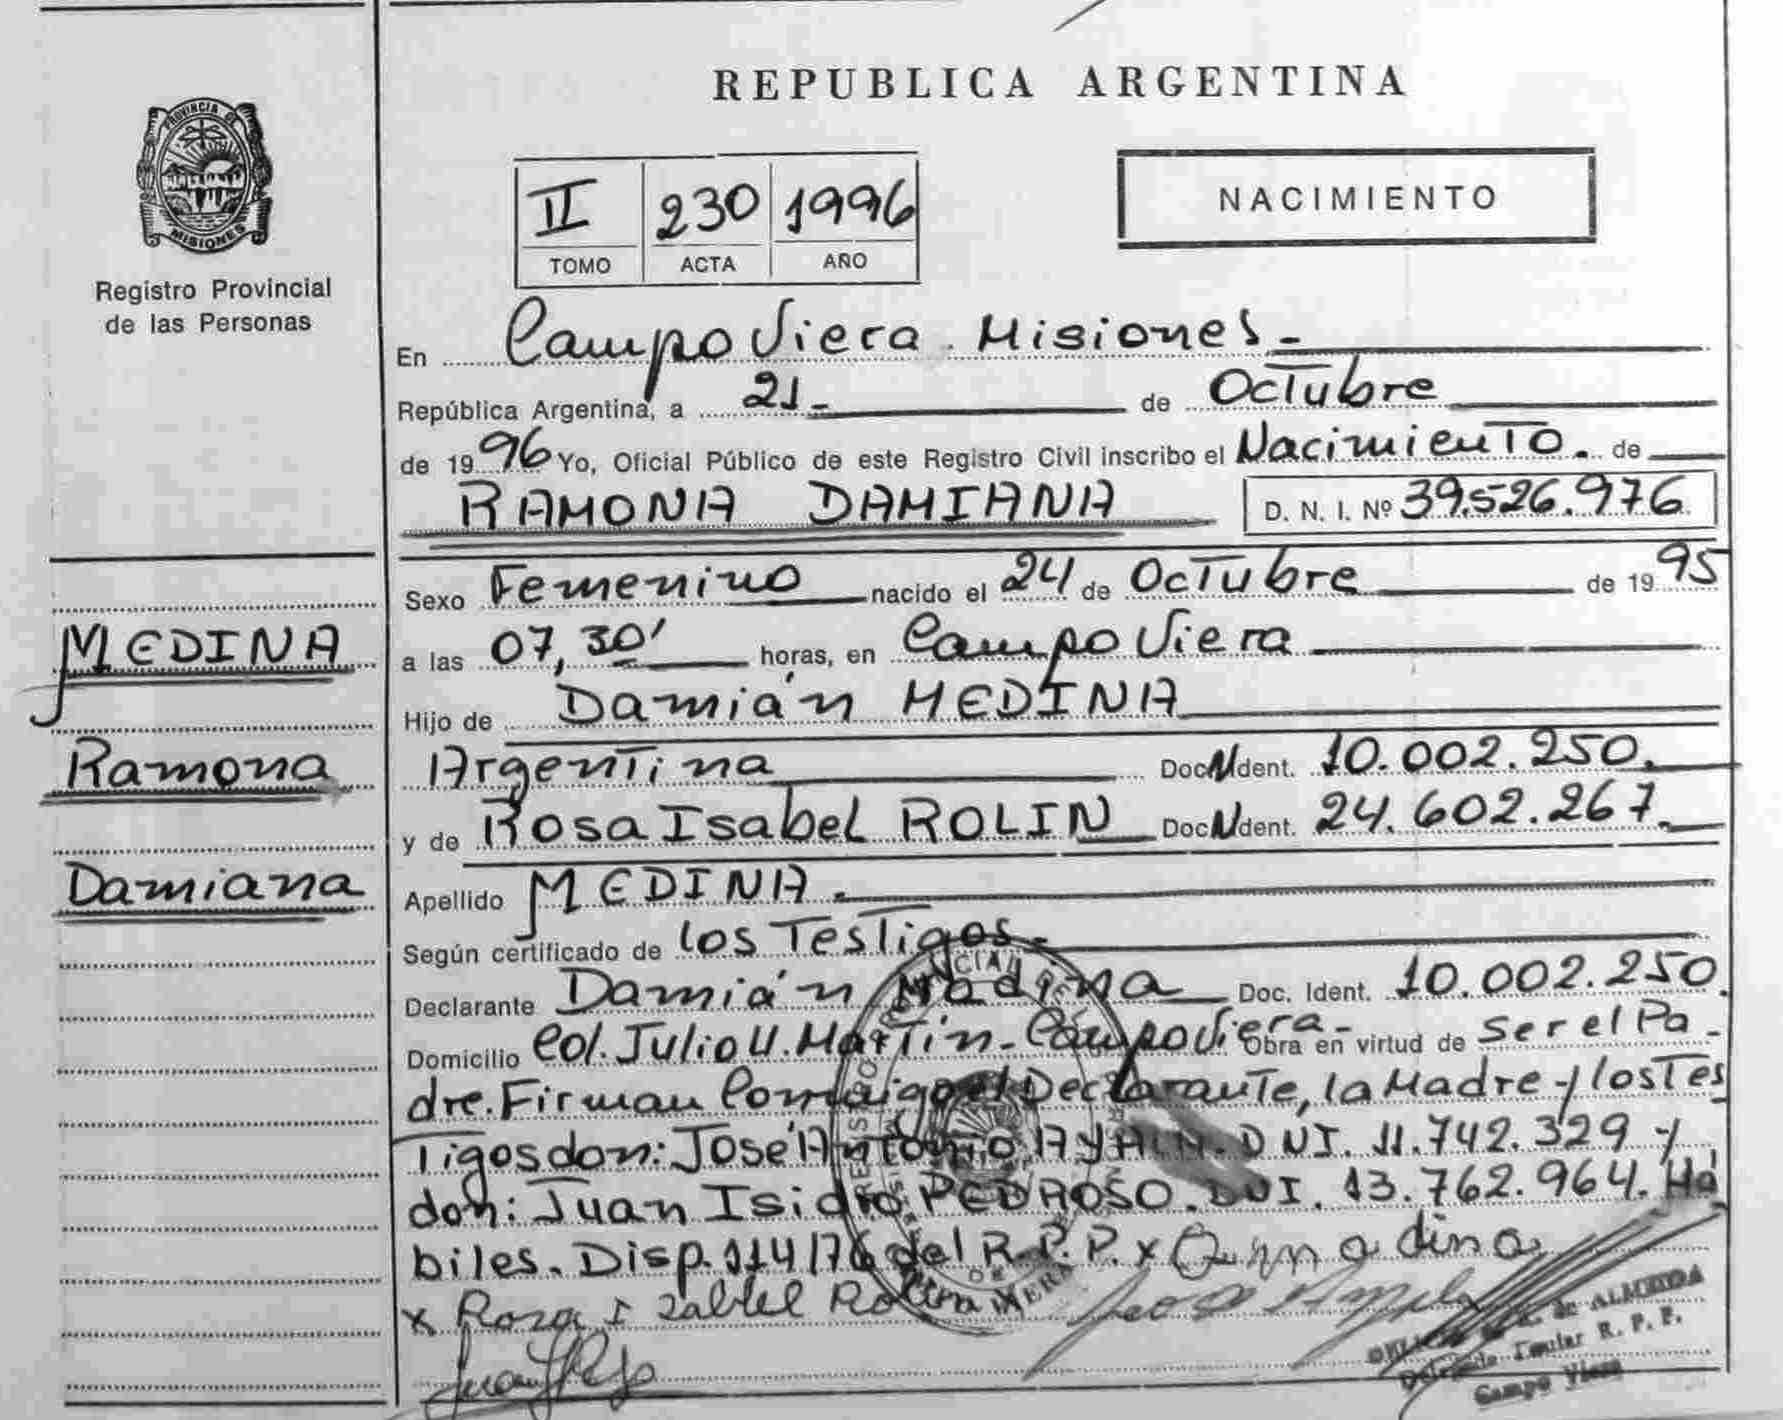 REPUBLICA ARGENTINA
PROVINCIA DE
MISIONES
Registro Provincial
de las Personas
NACIMIENTO
II 230 1996
TOMO ACTA AÑO
En Campo Viera Misiones.-
República Argentina, a 21- de Octubre
de 1996 Yo, Oficial Público de este Registro Civil inscribo el Nacimiento. de
RAMONA DAMIANA D. N. I. Nº 39.526.976
Sexo Femenino nacido el 24 de Octubre de 1995
a las 07,30' horas, en Campo Viera
Hijo de Damián MEDINA
Argentina Doc N Ident. 10.002.250.
y de Rosa Isabel ROLIN Doc N Ident. 24.602.267.
Apellido MEDINA.-
Según certificado de los Testigos-
Declarante Damián Medina Doc. Ident. 10.002.250.
Domicilio Col. Julio U. Martin- Campo Viera- Obra en virtud de ser el Pa-
dre. Firman Conmigo el Declarante, la Madre y los Tes
Tigos don: José Antonio AYALA. DNI. 11.742.329 y
don: Juan Isidro PEDROSO. DNI. 13.762.964. Há
biles. Disp. 114/76 del R.P.P. x
x Rosa I zabel Rolin x
de ALMEIDA
Titular R. P. P.
Campo Viera
MEDINA
Ramona
Damiana